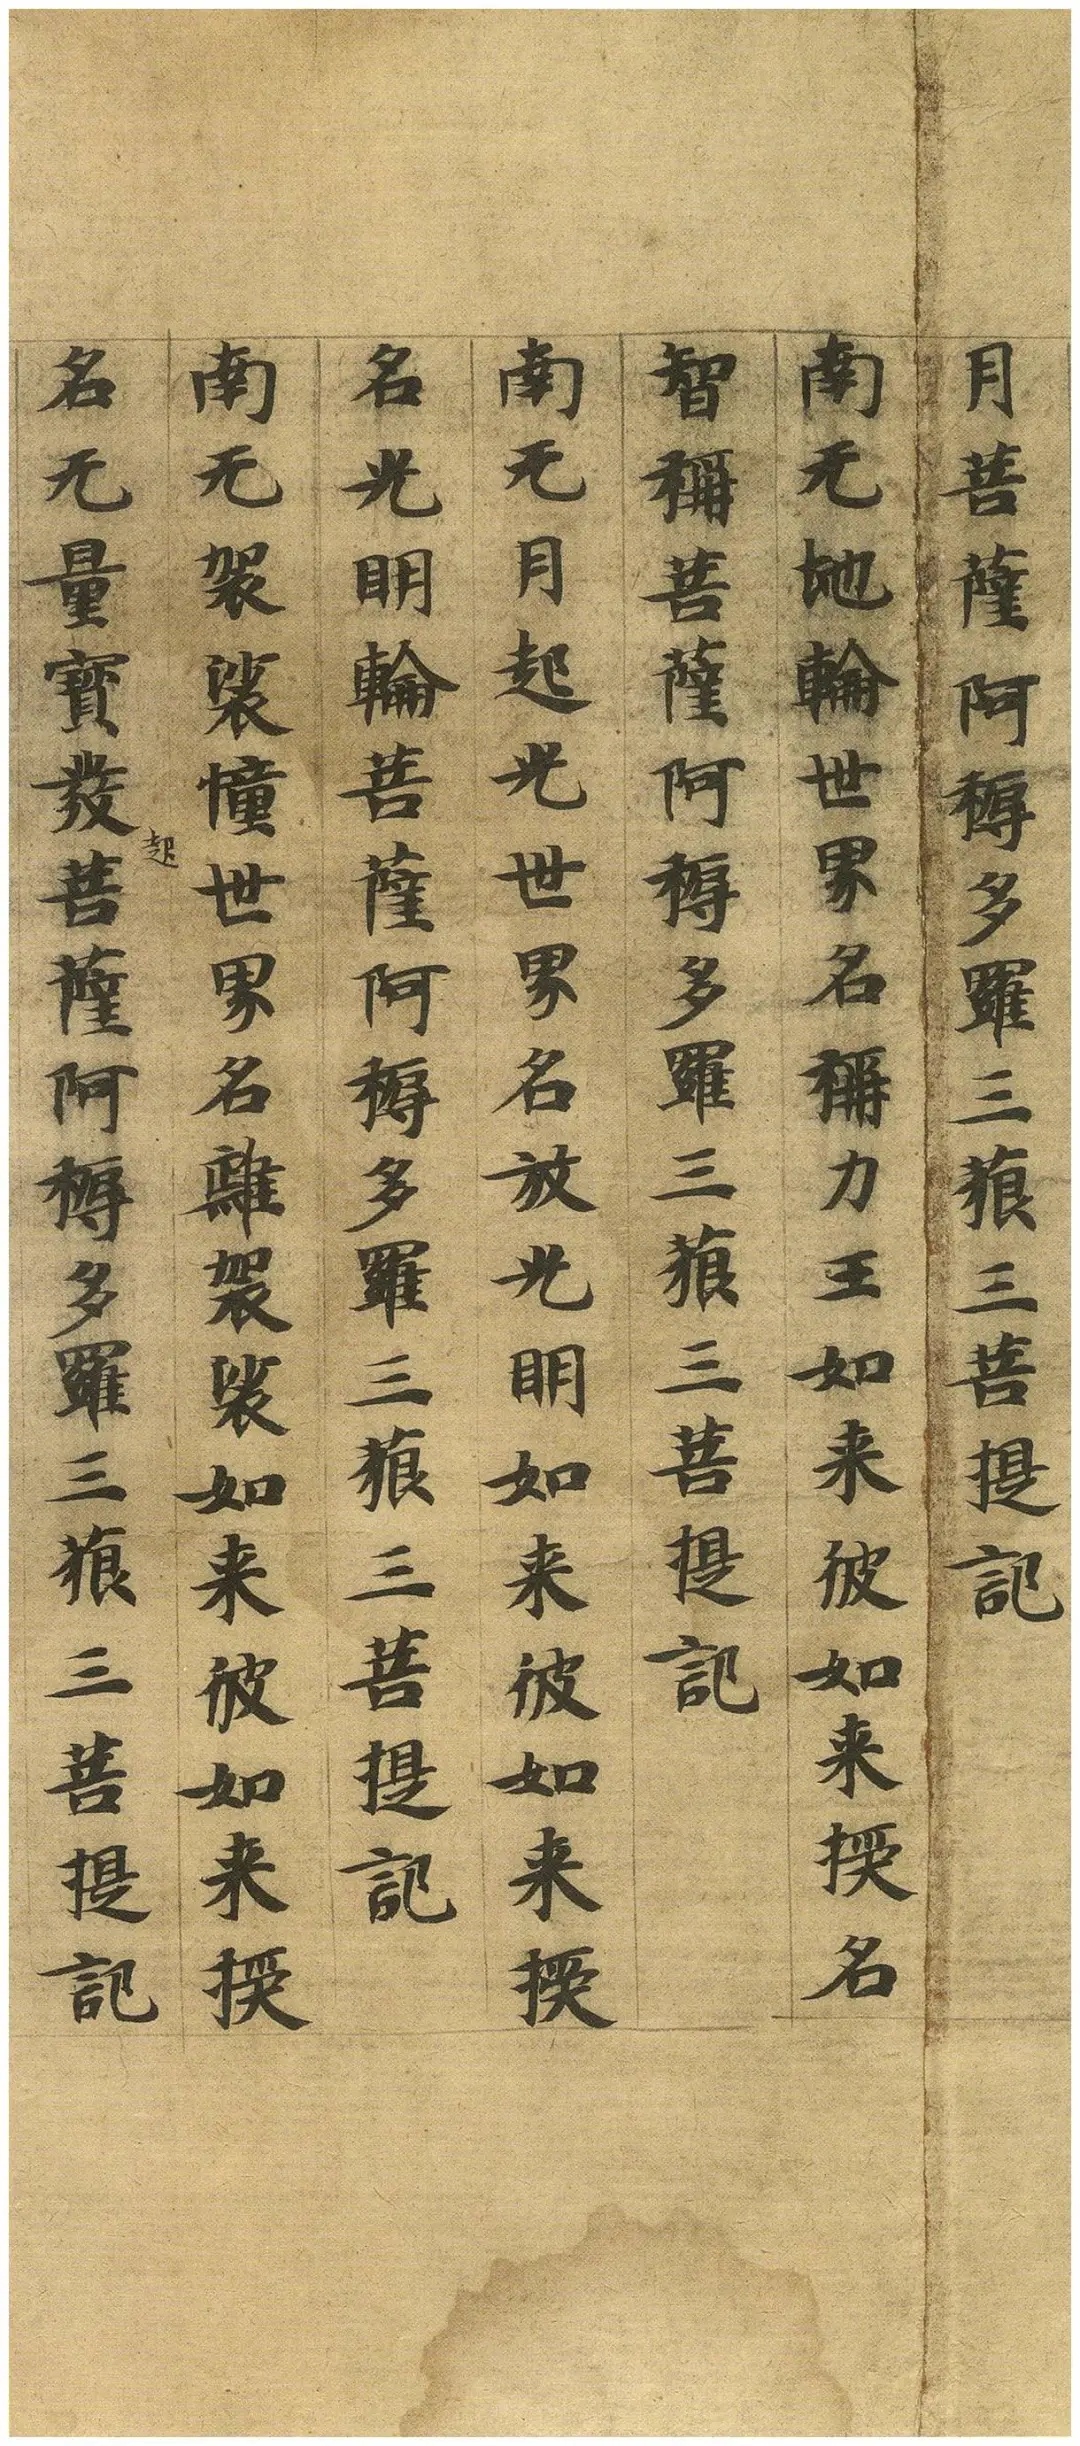 月菩薩阿耨多羅三藐三菩提記
南无地輪世界名稱力王如来彼如来授名
智稱菩薩阿耨多羅三藐三菩提記
南无月起光世界名放光明如来彼如来授
名光明輪菩薩阿耨多羅三藐三菩提記
南无袈裟幢世界名離袈裟如来彼如来授
名无量寶發起菩薩阿耨多羅三藐三菩提記